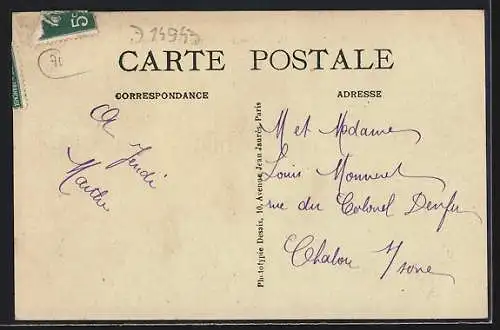 5c
71
D 14943
CARTE POSTALE
CORRESPONDANCE
ADRESSE
A Jeudi
Marthe
Phototypie Desaix, 10, Avenue Jean Jaurès, Paris
M et Madame
Louis Monneret
rue du Colonel Denfert
Chalon s/ Saone